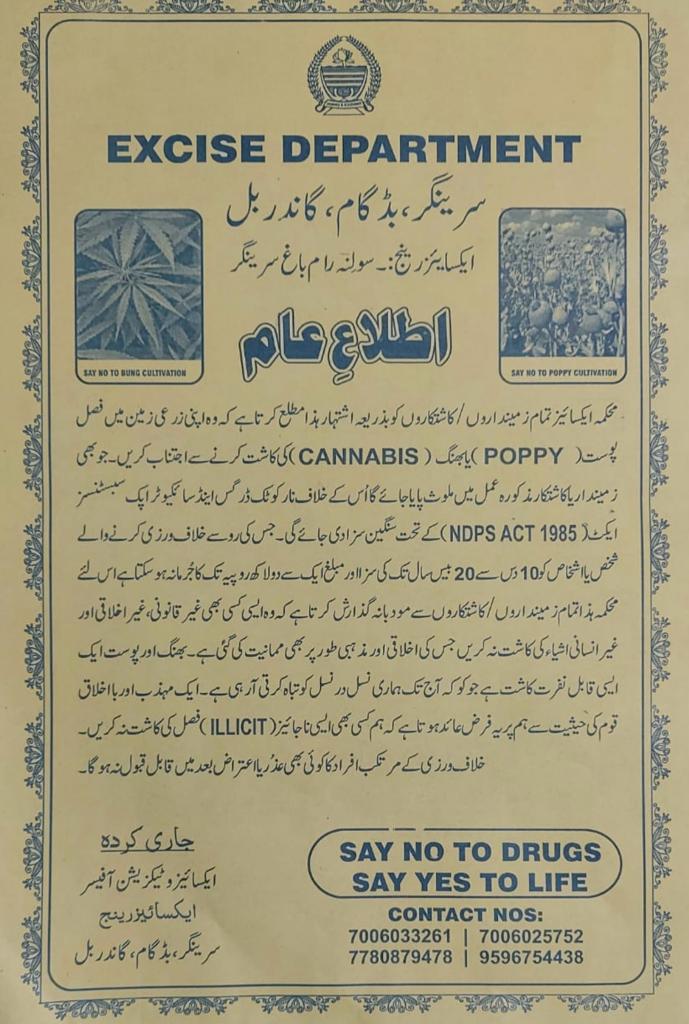 EXCISE DEPARTMENT
سرینگر، بڈگام، گاندربل
ایکسایئز رینج:۔ سولنہ رام باغ سرینگر
اطلاعِ عام
SAY NO TO BUNG CULTIVATION
SAY NO TO POPPY CULTIVATION
محکمہ ایکسائیز تمام زمینداروں/کاشتکاروں کو بذریعہ اشتہار ہذا مطلع کرتا ہے کہ وہ اپنی زرعی زمین میں فصل
پوست( POPPY )یا بھنگ ( CANNABIS) کی کاشت کرنے سے اجتناب کریں۔ جو بھی
زمیندار یا کاشتکار مذکورہ عمل میں ملوث پایا جائے گا اُس کے خلاف نارکوٹک ڈرگس اینڈ سائیکوٹراپک سبسٹنسز
ایکٹ( NDPS ACT 1985) کے تحت سنگین سزا دی جائے گی۔ جس کی روسے خلاف ورزی کرنے والے
شخص یا اشخاص کو 10 دس سے 20 بیس سال تک کی سزا اور مبلغ ایک سے دولاکھ روپیہ تک کا جُرمانہ ہوسکتا ہے اس لئے
محکمہ ہذا تمام زمینداروں/کاشتکاروں سے مودبانہ گذارش کرتا ہے کہ وہ ایسی کسی بھی غیر قانونی، غیر اخلاقی اور
غیر انسانی اشیاء کی کاشت نہ کریں جس کی اخلاقی اور مذہبی طور پر بھی ممانیت کی گئی ہے۔ بھنگ اور پوست ایک
ایسی قابل نفرت کاشت ہے جو کو کہ آج تک ہماری نسل در نسل کو تباہ کرتی آرہی ہے۔ ایک مہذب اور بااخلاق
قوم کی حیثیت سے ہم پر یہ فرض عائد ہوتا ہے کہ ہم کسی بھی ایسی ناجائیز( ILLICIT) فصل کی کاشت نہ کریں۔
خلاف ورزی کے مرتکب افراد کا کوئی بھی عذُر یا اعتراض بعد میں قابل قبول نہ ہوگا۔
جاری کردہ
ایکسائیز و ٹیکزیشن آفیسر
ایکسائیزرینج
سرینگر، بڈگام، گاندربل
SAY NO TO DRUGS
SAY YES TO LIFE
CONTACT NOS:
7006033261 | 7006025752
7780879478 | 9596754438